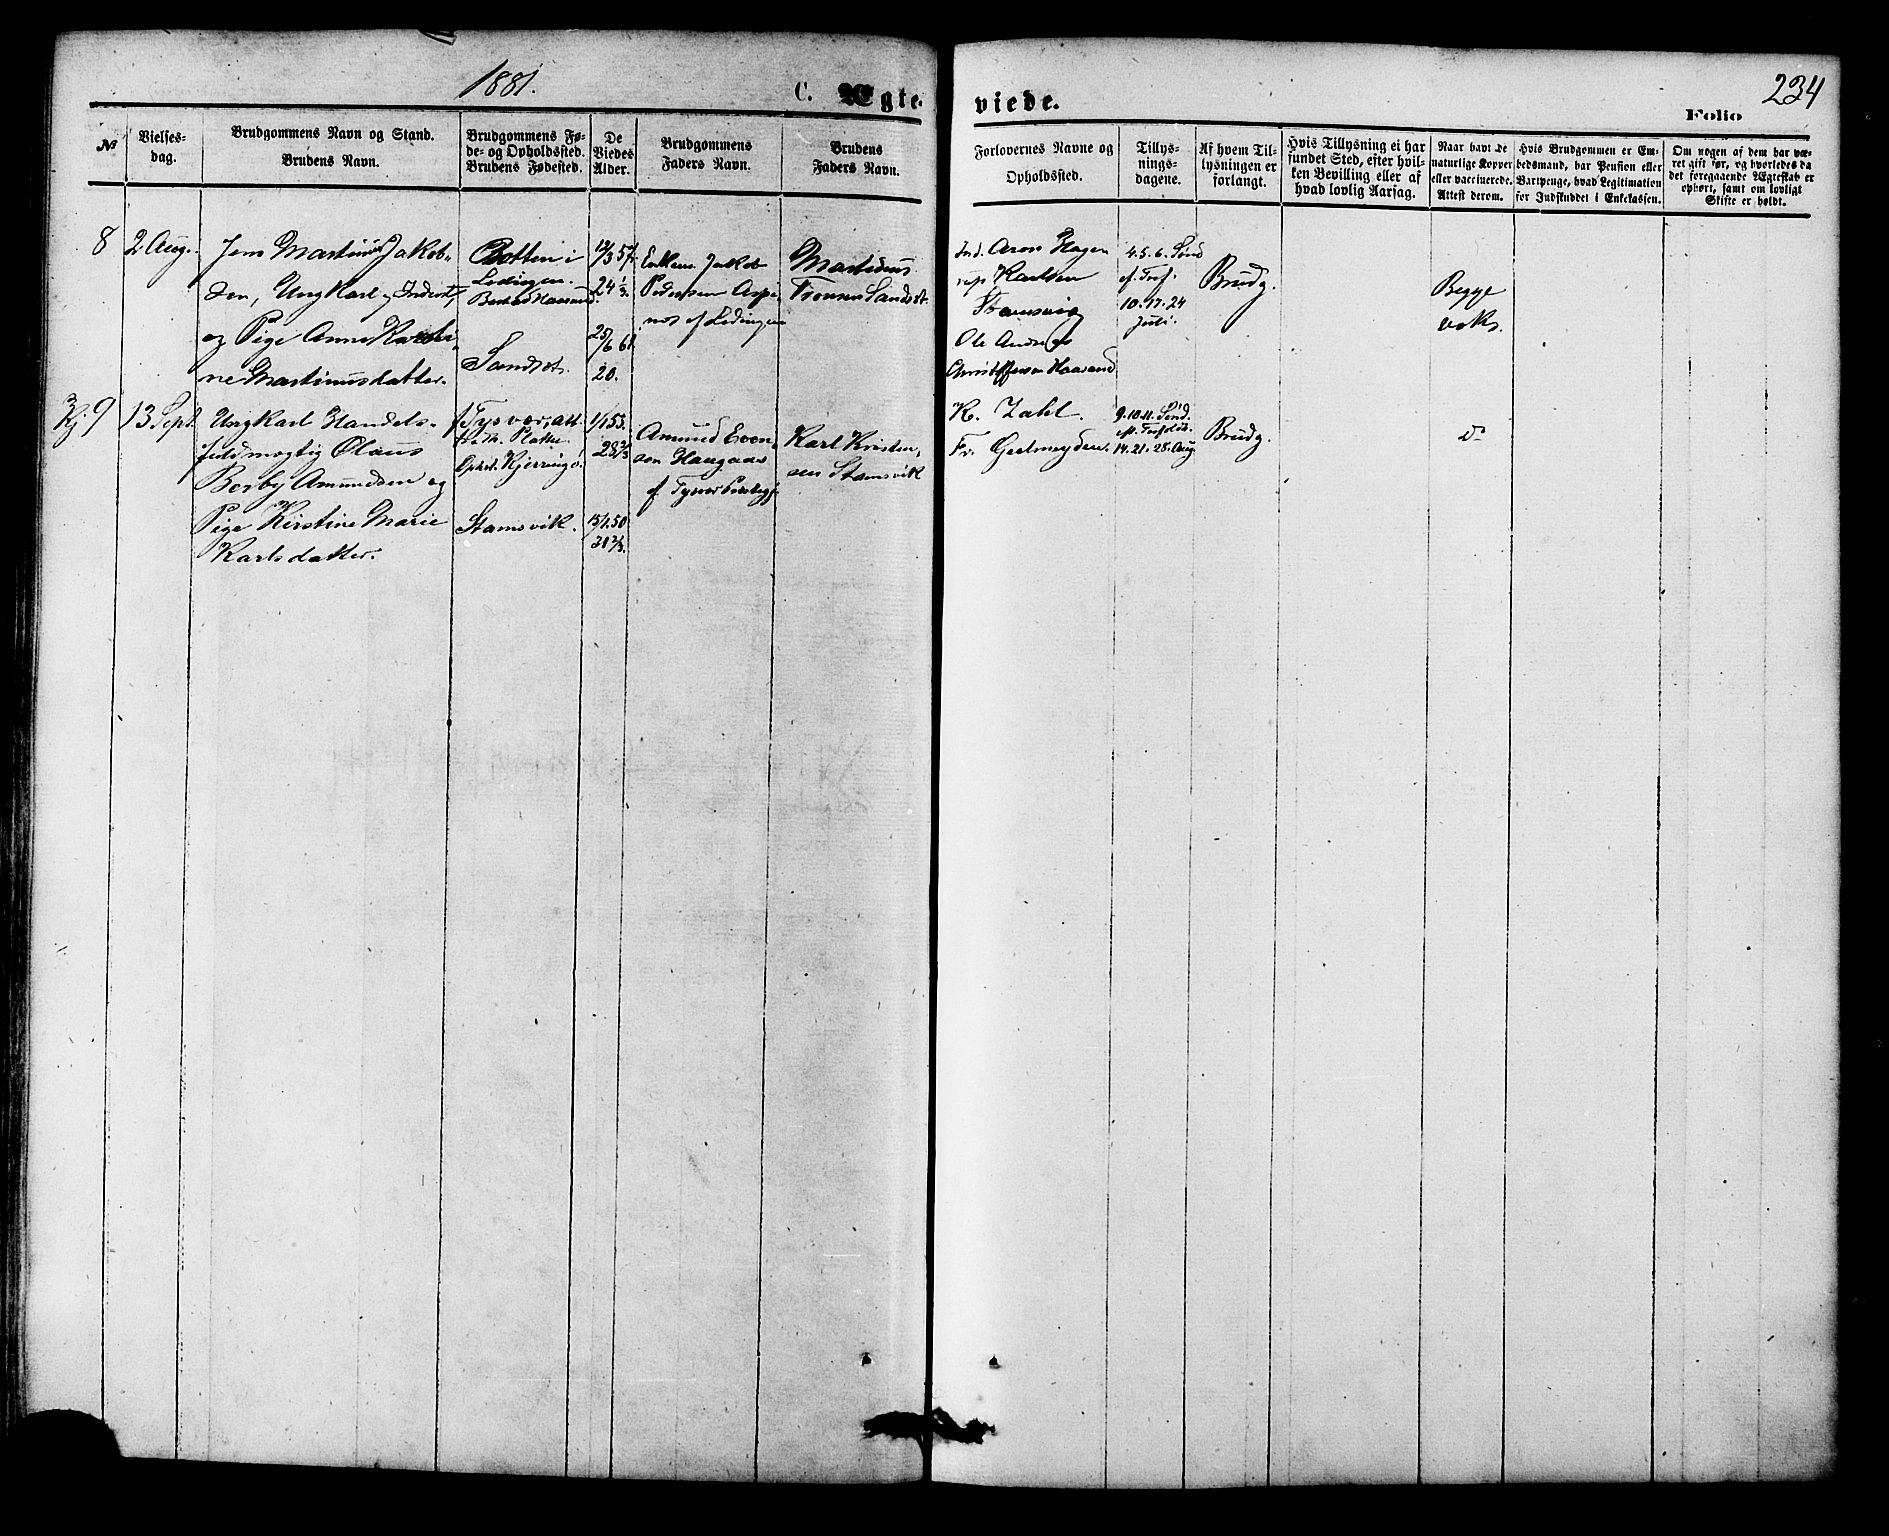 1881.
C. Ægte-
viede.
234
Folio
№
Vielses-
dag.
Brudgommens Navn og Stand.
Brudens Navn.
Brudgommens Fø-
de- og Opholdssted.
Brudens Fødested.
De
Viedes
Alder.
Brudgommens
Faders Navn.
Brudens
Faders Navn.
Forlovernes Navne og
Opholdssted.
Tillys-
nings-
dagene.
Af hvem Til-
lysningen er
forlangt.
Hvis Tillysning ei har
fundet Sted, efter hvil-
ken Bevilling eller af
hvad lovlig Aarsag.
Naar havt de
naturlige Kopper
eller vaccinerede.
Attest derom.
Hvis Brudgommen er Em-
bedsmand, har Pension eller
Vartpenge, hvad Legitimation
for Indskuddet i Enkekassen.
Om nogen af dem har væ-
ret gift før, og hvorledes da
det foregaaende Ægteskab er
ophørt, samt om lovligt
Skifte er holdt.
8
2 Aug.
Jens Martinus Jakob-
sen, Ungkarl, Inderst,
og Pige Anna
ne Martinusdatter.
Botten i
Lødingen.
Haasand.
Sandset.
12/3 57
24 1/3.
25/6 61
20.
Enkem. Jakob
Pedersen
nes af Lødingen
Martinus
Tronsen Sandset.
Ind. Aron Hagen
rup Karlsen
Stamsvig
Ole Andreas
Christoffersen Haasand
4. 5. 6. Sønd
ef. Tref.
10. 17. 24
Juli.
Brudg.
Begge
vaks.
Kj 9
13 Sept
Ungkarl Handels-
fuldmægtig Olaus
Berby Amundsen og
Pige Kirstine Marie
Karlsdatter.
f. Tysvær, att.
Opht. Kjerringø.
Stamsvik.
1/1 53.
28 2/3
15/1 50
31 2/3.
Amund Even-
sen Haugaas
af Tysvær Præstegj.
Karl Kristen-
sen Stamsvik
K. Zahl.
Fr. Geelmuyden.
9. 10. 11. Sønd.
14. 21. 28. Aug.
Brudg.
Do